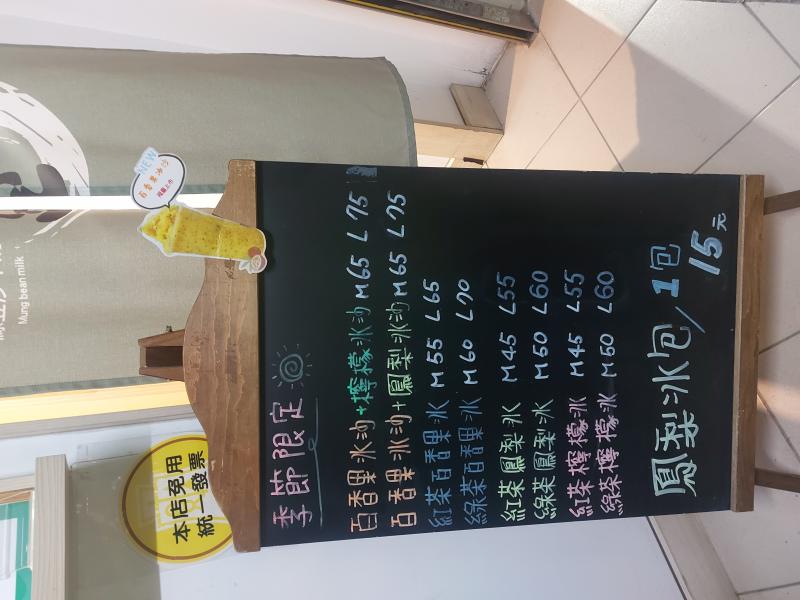 季節限定
百香果冰沙+檸檬冰沙 M65 L75
百香果冰沙+鳳梨冰沙 M65 L75
紅茶百香果冰 M55 L65
綠茶百香果冰 M60 L70
紅茶鳳梨冰 M45 L55
綠茶鳳梨冰 M50 L60
紅茶檸檬冰 M45 L55
綠茶檸檬冰 M50 L60
鳳梨冰包/1包
15元
NEW
百香果冰沙
本店免用
統一發票
Mung bean milk